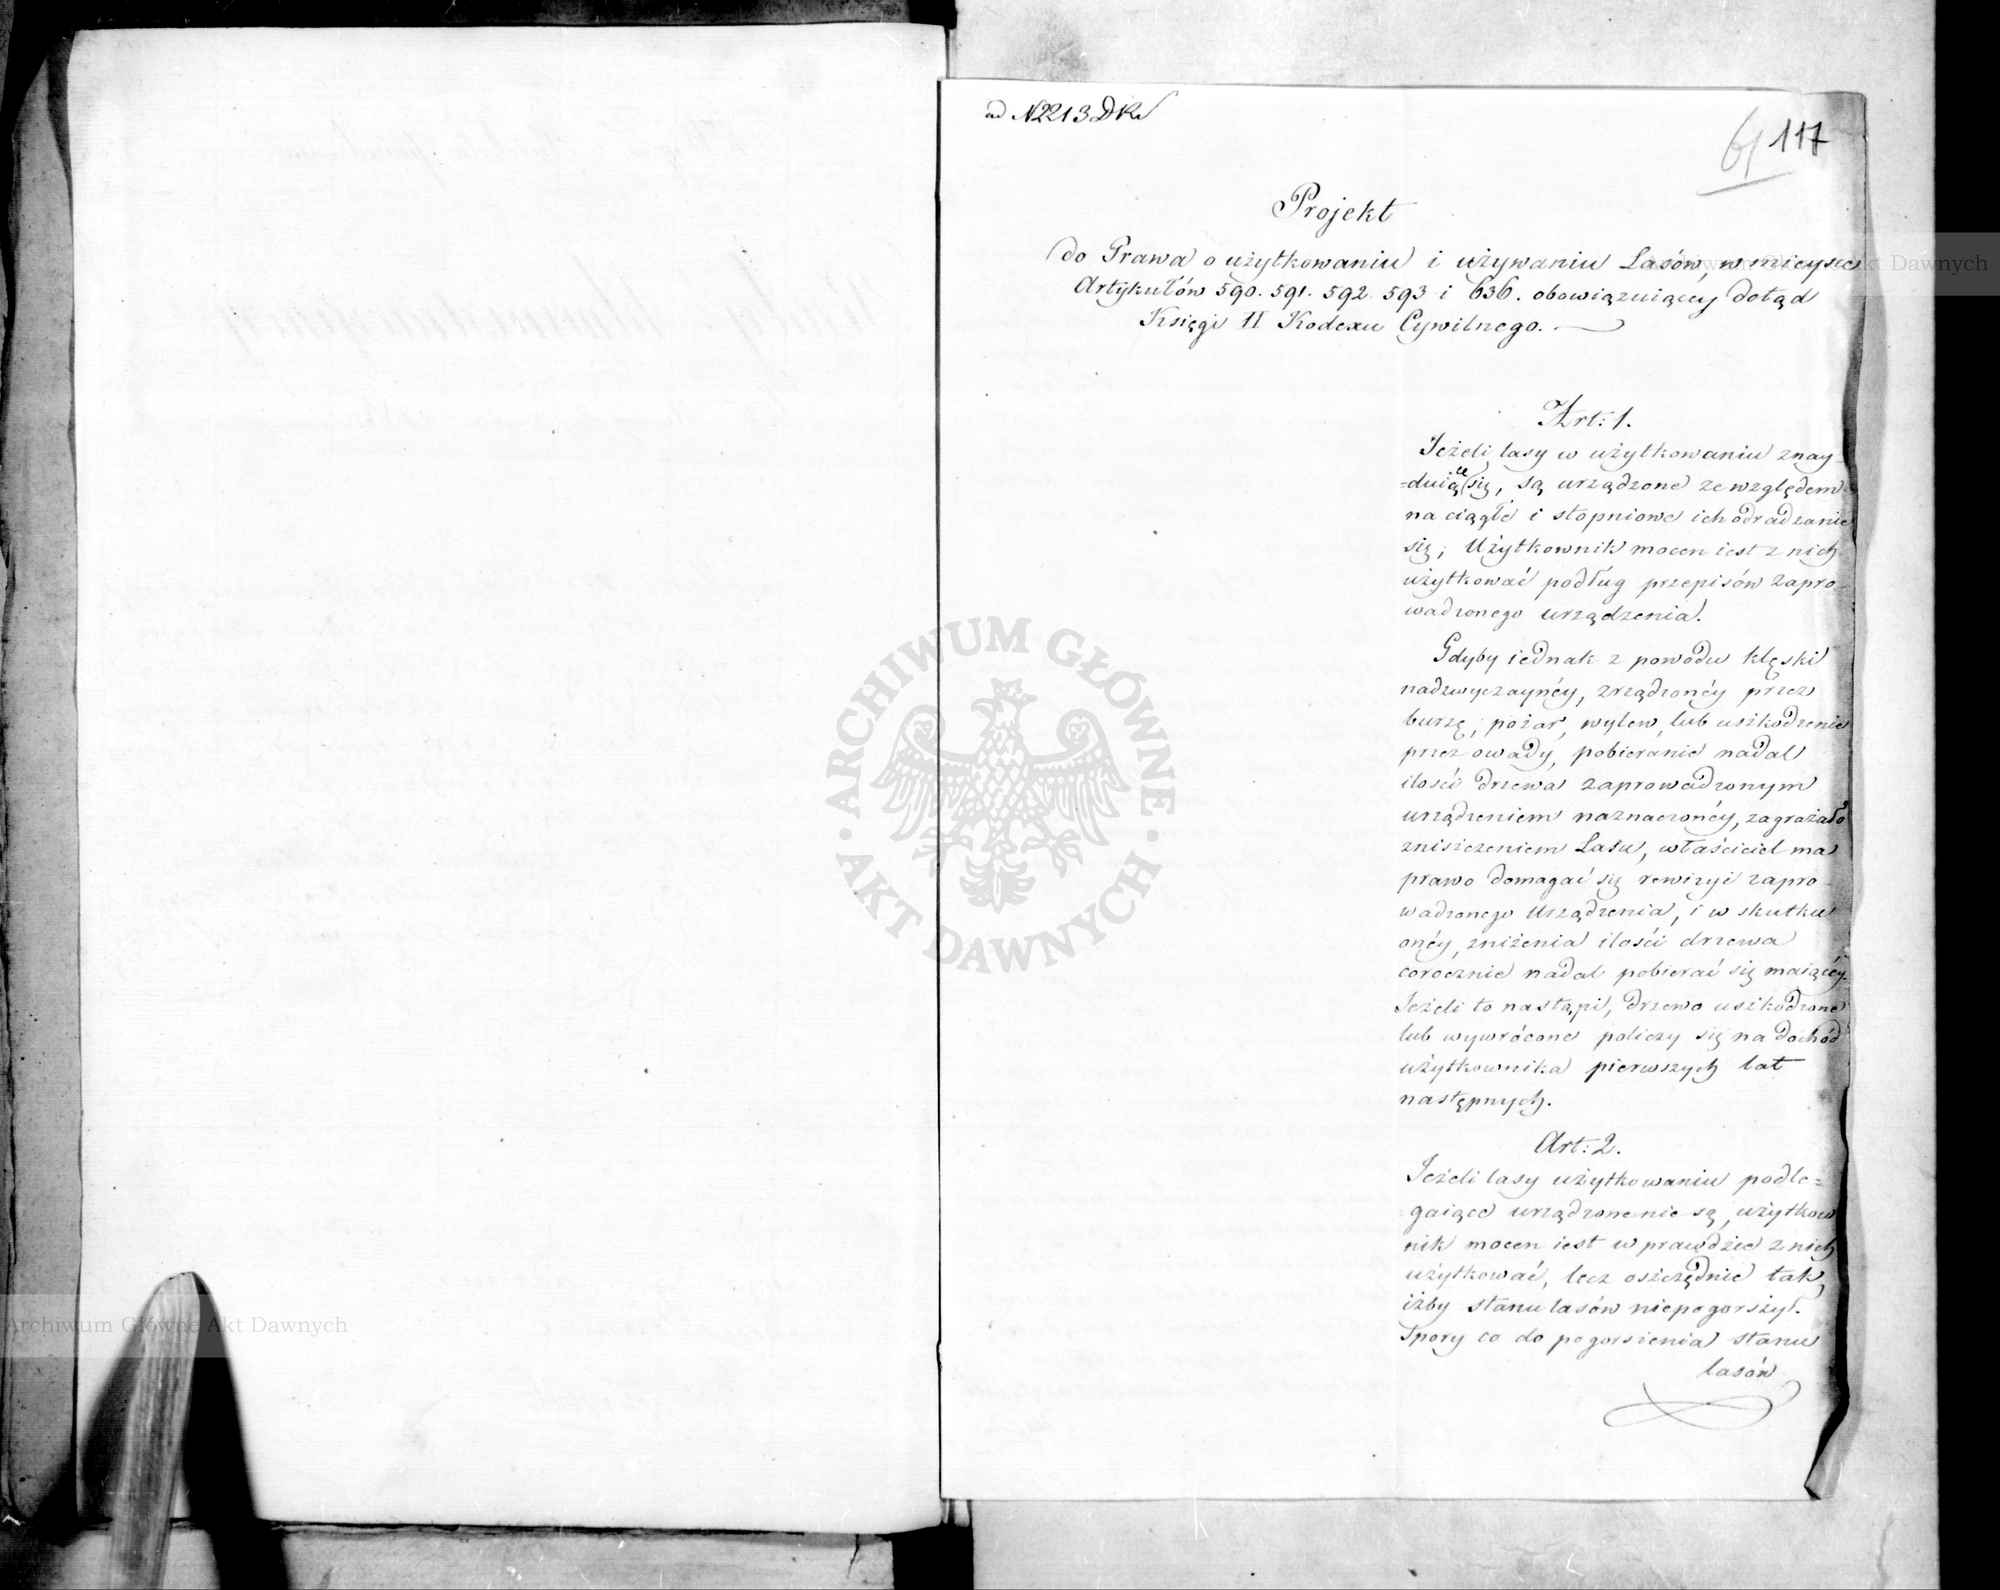 ad N 2213 DKS
61 117
Projekt
do Prawa o użytkowaniu i używaniu Lasów, w mieysce
Artykułów 590. 591. 592. 593 i 636. obowiązuiącey dotąd
Księgi II Kodexu Cywilnego.
Art: 1.
Jeżeli lasy w użytkowaniu znay-
=duiące się, są urządzone ze względem
na ciągłe i stopniowe ich odradzanie
się; Użytkownik mocen iest z nich
użytkować podług przepisów zapro-
wadzonego urządzenia.
Gdyby iednak z powodu klęski
nadzwyczaynéy, zrządzonéy przez
burzę, pożar, wylew, lub uszkodzenie
przez owady, pobieranie nadal
ilości drzewa zaprowadzonym
urządzeniem naznaczonéy, zagrażało
zniszczeniem Lasu, właściciel ma
prawo domagać się rewizyi zapro-
wadzonego Urządzenia, i w skutku
onéy, zniżenia ilości drzewa
corocznie nadal pobierać się maiącéy.
Jeżeli to nastąpi, drzewo uszkodzone
lub wywrócone policzy się na dochód
użytkownika pierwszych lat
następnych.
Art: 2.
Jeżeli lasy użytkowaniu podle=
gaiące urządzone nie są, użytkow
nik mocen iest w prawdzie z nich
użytkować, lecz oszczędnie tak,
iżby stanu lasów niepogorszył.
Spory co do pogorszenia stanu
lasów
ARCHIWUM GŁÓWNE
AKT DAWNYCH
Archiwum Główne Akt Dawnych
Archiwum Główne Akt Dawnych